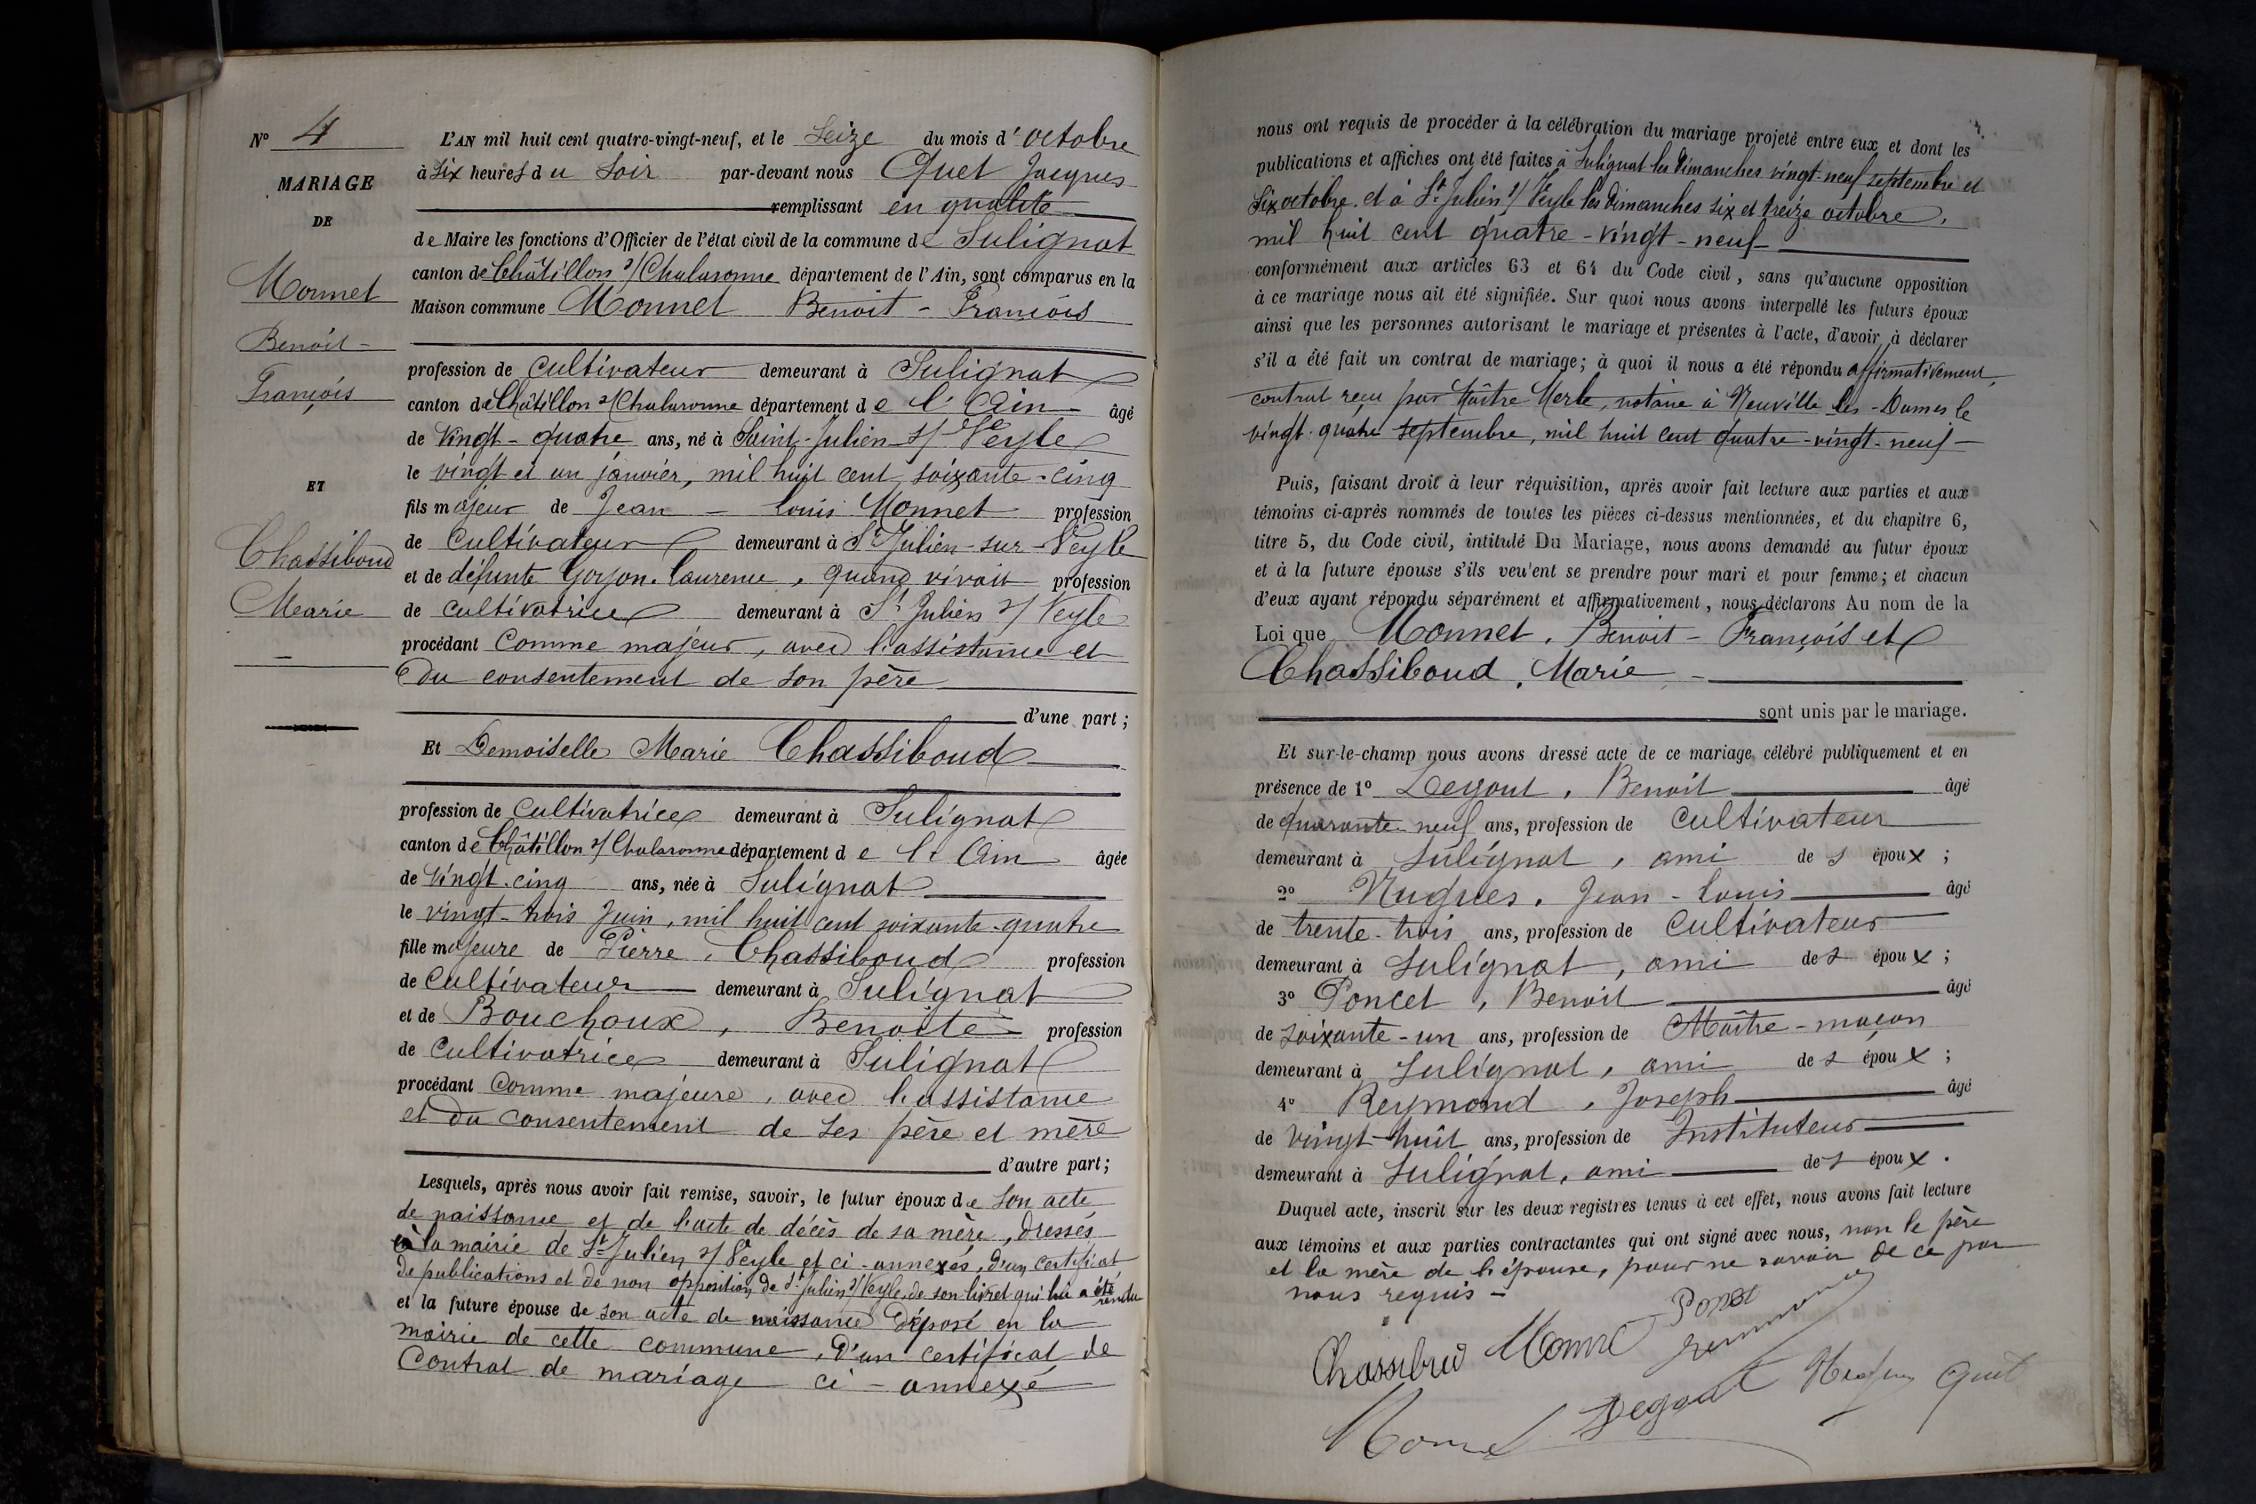 N° 4
MARIAGE
DE
Monnet
Benoit-
François
ET
Chassiboud
Marie
L'AN mil huit cent quatre-vingt-neuf, et le Seize du mois d'octobre
à six heures du Soir par-devant nous Quet Jacques
remplissant en qualité
de Maire les fonctions d'Officier de l'état civil de la commune de Sulignat
canton de Châtillon s/Chalaronne département de l'Ain, sont comparus en la
Maison commune Monnet Benoit-François
profession de cultivateur demeurant à Sulignat
canton de Châtillon s/Chalaronne département de l'Ain âgé
de Vingt-quatre ans, né à Saint-Julien s/Veyle
le vingt et un janvier, mil huit cent soixante-cinq
fils majeur de Jean-Louis Monnet profession
de Cultivateur demeurant à St Julien-sur-Veyle
et de défunte Goyon Laurence, quand vivait profession
de cultivatrice demeurant à St Julien s/Veyle
procédant comme majeur, avec l'assistance et
du consentement de son père
d'une part;
Et Demoiselle Marie Chassiboud
profession de cultivatrice demeurant à Sulignat
canton de Châtillon s/Chalaronne département de l'Ain âgée
de Vingt-cinq ans, née à Sulignat
le vingt-trois Juin, mil huit cent soixante-quatre
fille majeure de Pierre, Chassiboud profession
de Cultivateur demeurant à Sulignat
et de Bouchoux, Benoite profession
de Cultivatrice demeurant à Sulignat
procédant comme majeure, avec l'assistance
et du consentement de ses père et mère
d'autre part;
Lesquels, après nous avoir fait remise, savoir, le futur époux de son acte
de naissance et de l'acte de décès de sa mère, dressés
à la mairie de St Julien s/Veyle et ci-annexés, d'un certificat
de publications et de non opposition de St Julien s/Veyle, de son livret qui lui a été rendu
et la future épouse de son acte de naissance déposé en la
mairie de cette commune, d'un certificat de
Contrat de mariage ci-annexé
nous ont requis de procéder à la célébration du mariage projeté entre eux et dont les
publications et affiches ont été faites à Sulignat les Dimanches vingt-neuf septembre et
six octobre et à St Julien s/Veyle les Dimanches six et treize octobre,
mil huit cent quatre-vingt-neuf
conformément aux articles 63 et 64 du Code civil, sans qu'aucune opposition
à ce mariage nous ait été signifiée. Sur quoi nous avons interpellé les futurs époux
ainsi que les personnes autorisant le mariage et présentes à l'acte, d'avoir à déclarer
s'il a été fait un contrat de mariage; à quoi il nous a été répondu affirmativement,
contrat reçu par Maître Merle, notaire à Neuville-les-Dames le
vingt-quatre septembre, mil huit cent quatre-vingt-neuf
Puis, faisant droit à leur réquisition, après avoir fait lecture aux parties et aux
témoins ci-après nommés de toutes les pièces ci-dessus mentionnées, et du chapitre 6,
titre 5, du Code civil, intitulé Du Mariage, nous avons demandé au futur époux
et à la future épouse s'ils veulent se prendre pour mari et pour femme; et chacun
d'eux ayant répondu séparément et affirmativement, nous déclarons Au nom de la
Loi que Monnet, Benoit-François et
Chassiboud, Marie
sont unis par le mariage.
Et sur-le-champ nous avons dressé acte de ce mariage, célébré publiquement et en
présence de 1° Degout, Benoit âgé
de quarante-neuf ans, profession de Cultivateur
demeurant à Sulignat, ami des époux;
2° Nugues, Jean-Louis âgé
de trente-trois ans, profession de Cultivateur
demeurant à Sulignat, ami des époux;
3° Poncet, Benoit âgé
de soixante-un ans, profession de Maître-maçon
demeurant à Sulignat, ami des époux;
4° Reymond, Joseph âgé
de Vingt-huit ans, profession de Instituteur
demeurant à Sulignat, ami des époux.
Duquel acte, inscrit sur les deux registres tenus à cet effet, nous avons fait lecture
aux témoins et aux parties contractantes qui ont signé avec nous, non le père
et la mère de l'épouse, pour ne savoir de ce par
nous requis-
Chassibud Monné
Degout Quet